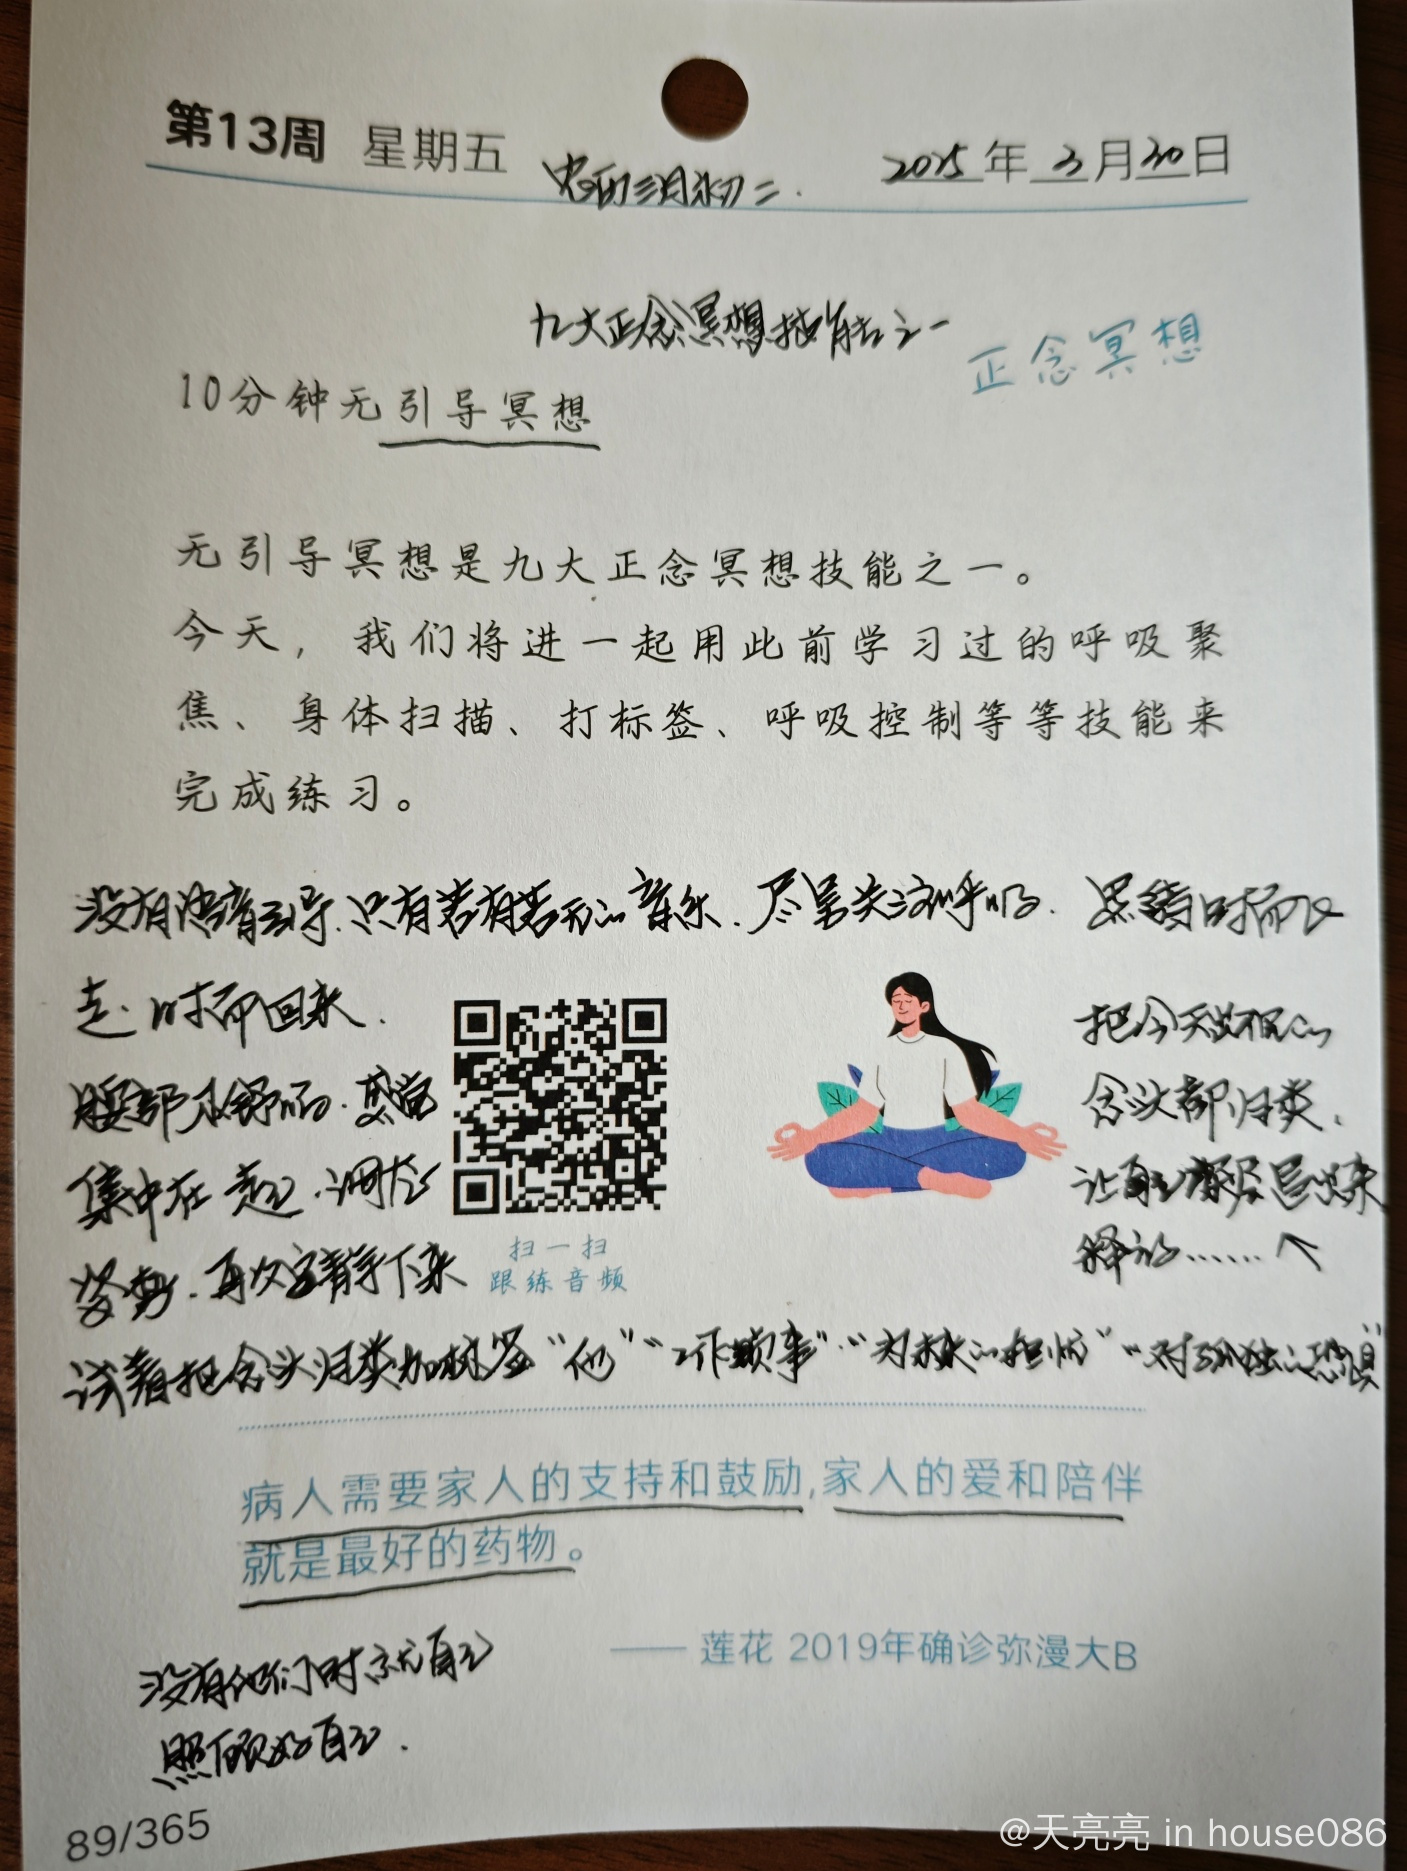 第13周 星期五
2025年3月30日
农历三月初二.
九大正念冥想技能之一
正念冥想
10分钟无引导冥想
无引导冥想是九大正念冥想技能之一。
今天，我们将进一起用此前学习过的呼吸聚
焦、身体扫描、打标签、呼吸控制等等技能来
完成练习。
没有语音引导.只有若有若无的音乐.尽量关注呼吸.思绪时而
走.时而回来.
腰部不舒服.感觉
集中在这.调整
姿势.再次安静下来
把今天出现的
念头都归类.
让自己
释放……↖
扫一扫
跟练音频
试着把念头归类加标签“他”“工作烦事”.“对未来的担忧”“对孤独的恐惧”
病人需要家人的支持和鼓励,家人的爱和陪伴
就是最好的药物。
—— 莲花 2019年确诊弥漫大B
没有他们时就自己
照顾好自己.
89/365
@天亮亮 in house086